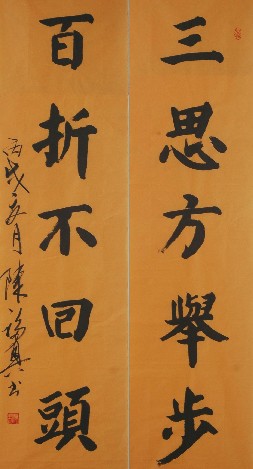 三思方舉步
百折不回頭
丙戌亥月 陳福興书